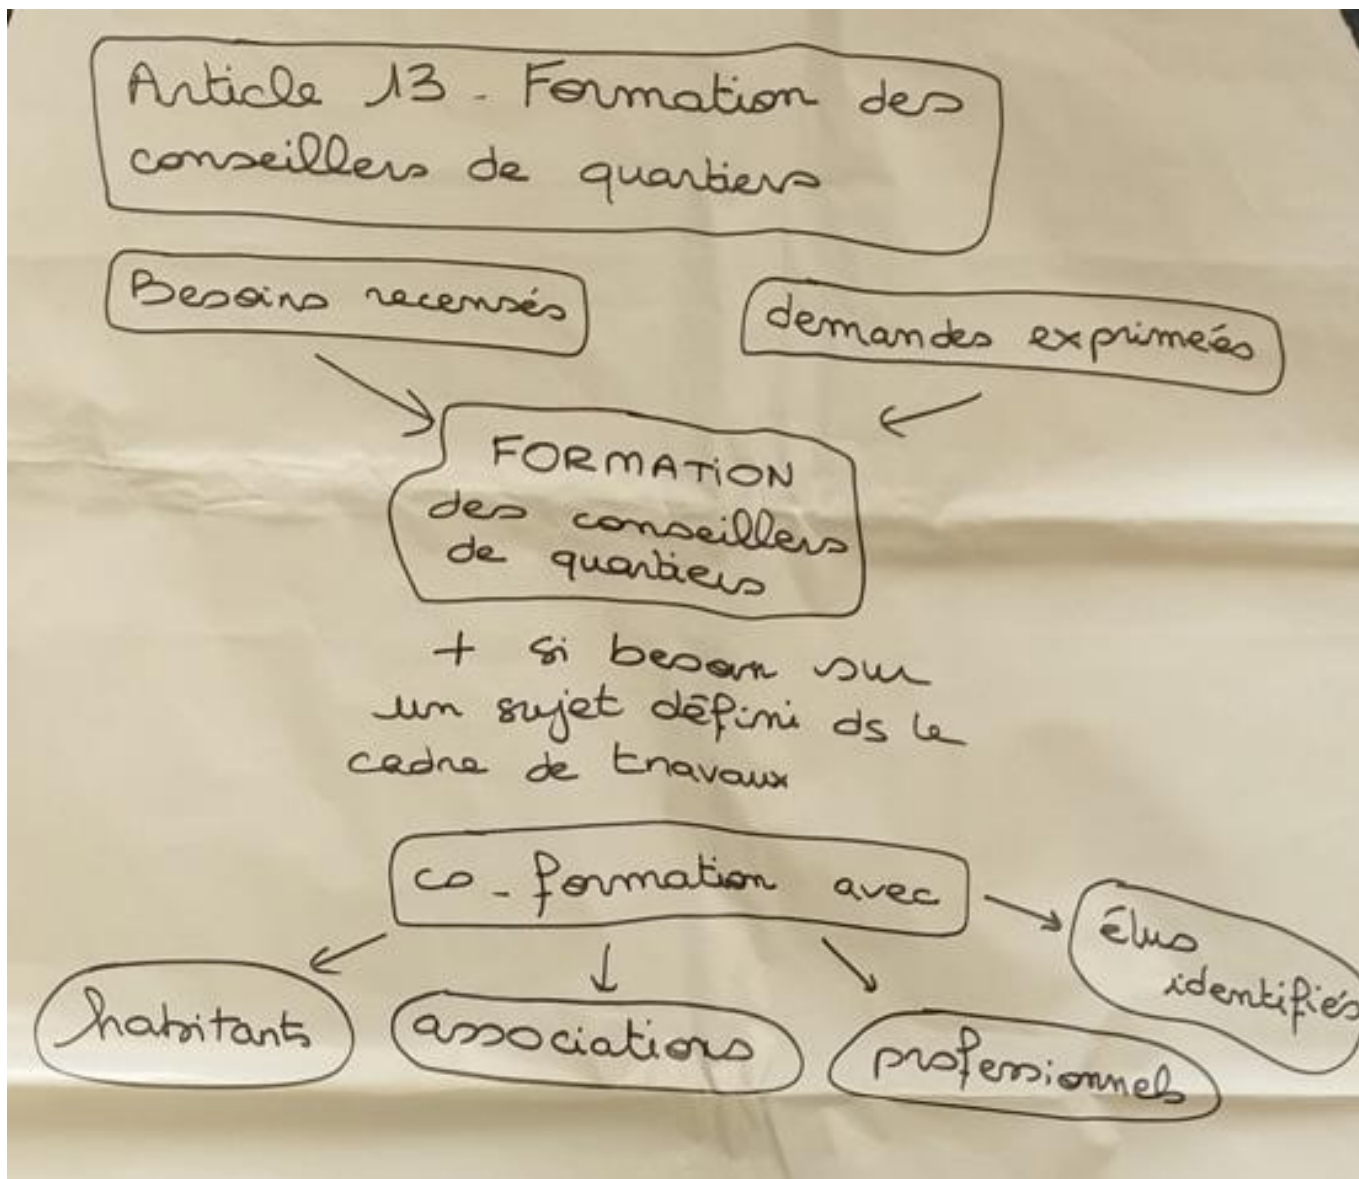 Article 13 - Formation des
conseillers de quartiers
Besoins recensés
demandes exprimées
FORMATION
des conseillers
de quartiers
+ si besoin sur
un sujet défini ds le
cadre de travaux
co-formation avec
élus
identifiés
habitants
associations
professionnels